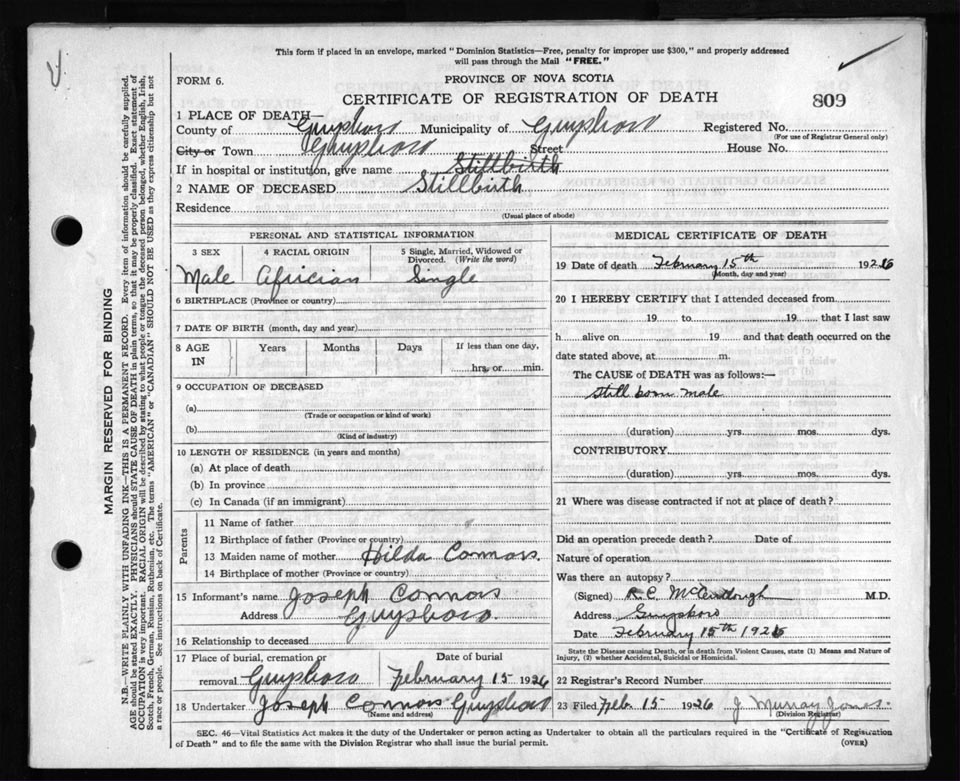 This form if placed in an envelope, marked "Dominion Statistics—Free, penalty for improper use $300," and properly addressed
will pass through the Mail "FREE."
FORM 6.
PROVINCE OF NOVA SCOTIA
CERTIFICATE OF REGISTRATION OF DEATH
809
1 PLACE OF DEATH—
County of Guysboro Municipality of Guysboro Registered No.
(For use of Registrar General only)
City or Town Guysboro Street House No.
If in hospital or institution, give name Stillbirth
2 NAME OF DECEASED Stillbirth
Residence
(Usual place of abode)
PERSONAL AND STATISTICAL INFORMATION
3 SEX 4 RACIAL ORIGIN 5 Single, Married, Widowed or
Divorced. (Write the word)
Male Africian Single
6 BIRTHPLACE (Province or country)
7 DATE OF BIRTH (month, day and year)
8 AGE IN Years Months Days If less than one day,
hrs. or min.
9 OCCUPATION OF DECEASED
(a)
(Trade or occupation or kind of work)
(b)
(Kind of industry)
10 LENGTH OF RESIDENCE (in years and months)
(a) At place of death
(b) In province
(c) In Canada (if an immigrant)
Parents
11 Name of father
12 Birthplace of father (Province or country)
13 Maiden name of mother Hilda Connors.
14 Birthplace of mother (Province or country)
15 Informant's name Joseph Connors
Address Guysboro.
16 Relationship to deceased
17 Place of burial, cremation or Date of burial
removal Guysboro February 15 1926
18 Undertaker Joseph Connors Guysboro
(Name and address)
MEDICAL CERTIFICATE OF DEATH
19 Date of death February 15th 1926
(Month, day and year)
20 I HEREBY CERTIFY that I attended deceased from
19 to 19 that I last saw
h alive on 19 and that death occurred on the
date stated above, at m.
The CAUSE of DEATH was as follows:—
Still born male
(duration) yrs. mos. dys.
CONTRIBUTORY
(duration) yrs. mos. dys.
21 Where was disease contracted if not at place of death?
Did an operation precede death? Date of
Nature of operation
Was there an autopsy?
(Signed) R.C. M.D.
Address Guysboro
Date February 15th 1926
State the Disease causing Death, or in death from Violent Causes, state (1) Means and Nature of
Injury, (2) whether Accidental, Suicidal or Homicidal.
22 Registrar's Record Number
23 Filed Feb. 15 1926 J Murray Jones.
(Division Registrar)
SEC. 46—Vital Statistics Act makes it the duty of the Undertaker or person acting as Undertaker to obtain all the particulars required in the "Certificate of Registration
of Death" and to file the same with the Division Registrar who shall issue the burial permit.
(OVER)
MARGIN RESERVED FOR BINDING
N.B.—WRITE PLAINLY WITH UNFADING INK—THIS IS A PERMANENT RECORD. Every item of information should be carefully supplied.
AGE should be stated EXACTLY. PHYSICIANS should STATE CAUSE OF DEATH in plain terms, so that it may be properly classified. Exact statement of
OCCUPATION is very important. RACIAL ORIGIN will be described by stating to what people or tongue the deceased person belonged, whether English, Irish,
Scotch, French, German, Russian, Ruthenian, etc. The terms "AMERICAN" or "CANADIAN" SHOULD NOT BE USED as they express citizenship but not
a race or people. See instructions on back of Certificate.